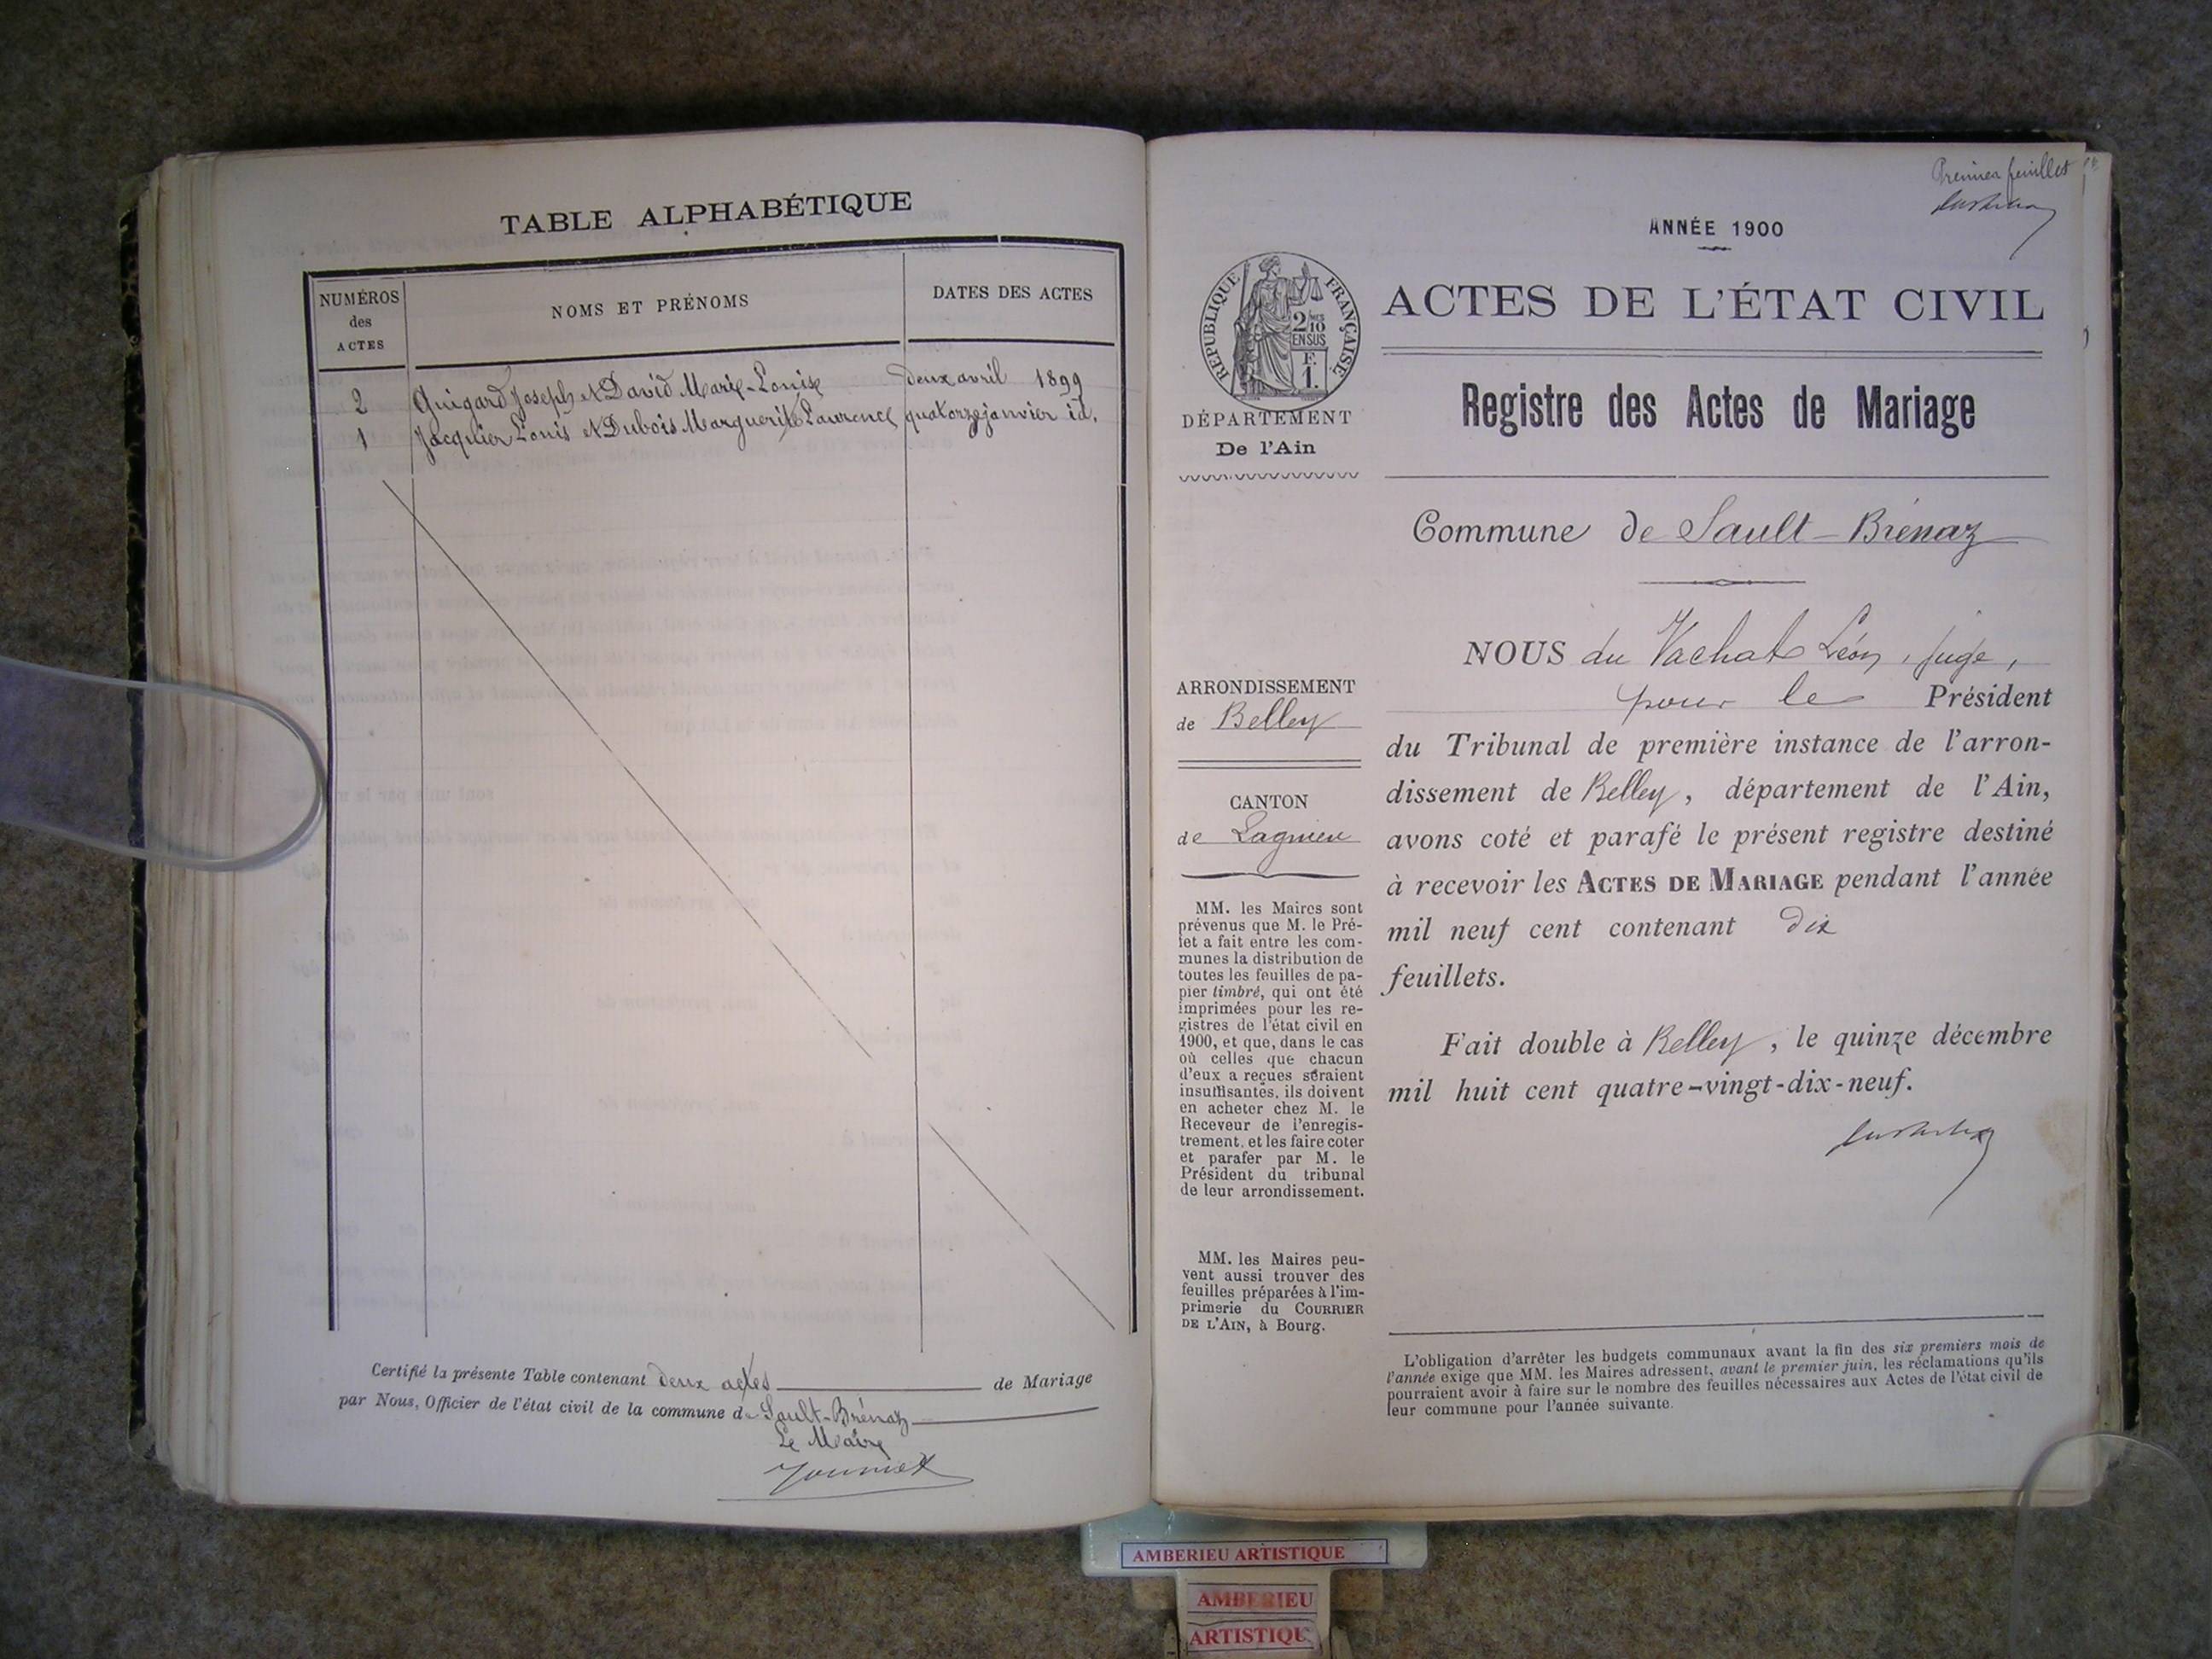 TABLE ALPHABÉTIQUE
NUMÉROS
des
ACTES
NOMS ET PRÉNOMS
DATES DES ACTES
2 Guigard Joseph et David Marie-Louise deux avril 1899
1 Jacquier Louis et Dubois Marguerite Laurence quatorze janvier id.
Certifié la présente Table contenant deux actes de Mariage
par Nous, Officier de l'état civil de la commune de Sault-Brénaz
Le Maire
Premier feuillet
ANNÉE 1900
RÉPUBLIQUE FRANÇAISE
2/10
EN SUS
F.
1.
DÉPARTEMENT
De l'Ain
ACTES DE L'ÉTAT CIVIL
Registre des Actes de Mariage
Commune de Sault-Brénaz
ARRONDISSEMENT
de Belley
CANTON
de Lagnieu
MM. les Maires sont
prévenus que M. le Pré-
fet a fait entre les com-
munes la distribution de
toutes les feuilles de pa-
pier timbré, qui ont été
imprimées pour les re-
gistres de l'état civil en
1900, et que, dans le cas
où celles que chacun
d'eux a reçues seraient
insuffisantes, ils doivent
en acheter chez M. le
Receveur de l'enregis-
trement, et les faire coter
et parafer par M. le
Président du tribunal
de leur arrondissement.
MM. les Maires peu-
vent aussi trouver des
feuilles préparées à l'im-
primerie du COURRIER
DE L'AIN, à Bourg.
NOUS du Vachat Léon, juge,
pour le Président
du Tribunal de première instance de l'arron-
dissement de Belley, département de l'Ain,
avons coté et parafé le présent registre destiné
à recevoir les ACTES DE MARIAGE pendant l'année
mil neuf cent contenant dix
feuillets.
Fait double à Belley, le quinze décembre
mil huit cent quatre-vingt-dix-neuf.
L'obligation d'arrêter les budgets communaux avant la fin des six premiers mois de
l'année exige que MM. les Maires adressent, avant le premier juin, les réclamations qu'ils
pourraient avoir à faire sur le nombre des feuilles nécessaires aux Actes de l'état civil de
leur commune pour l'année suivante.
AMBERIEU ARTISTIQUE
AMBERIEU
ARTISTIQUE